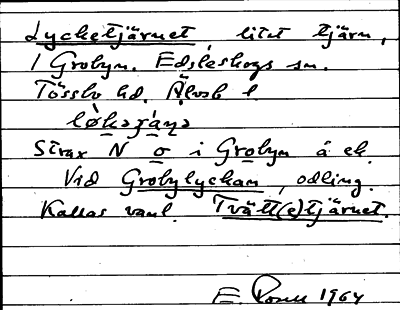 Lycketjärnet, litet tjärn,
i Grobyn. Edsleskogs sn.
Tössbo hd. Älvsb l
Strax N o i Grobyn å ek.
Vid Grobylyckan, odling.
Kallas vanl. Tvätt(e)tjärnet.
E. Rosell 1964